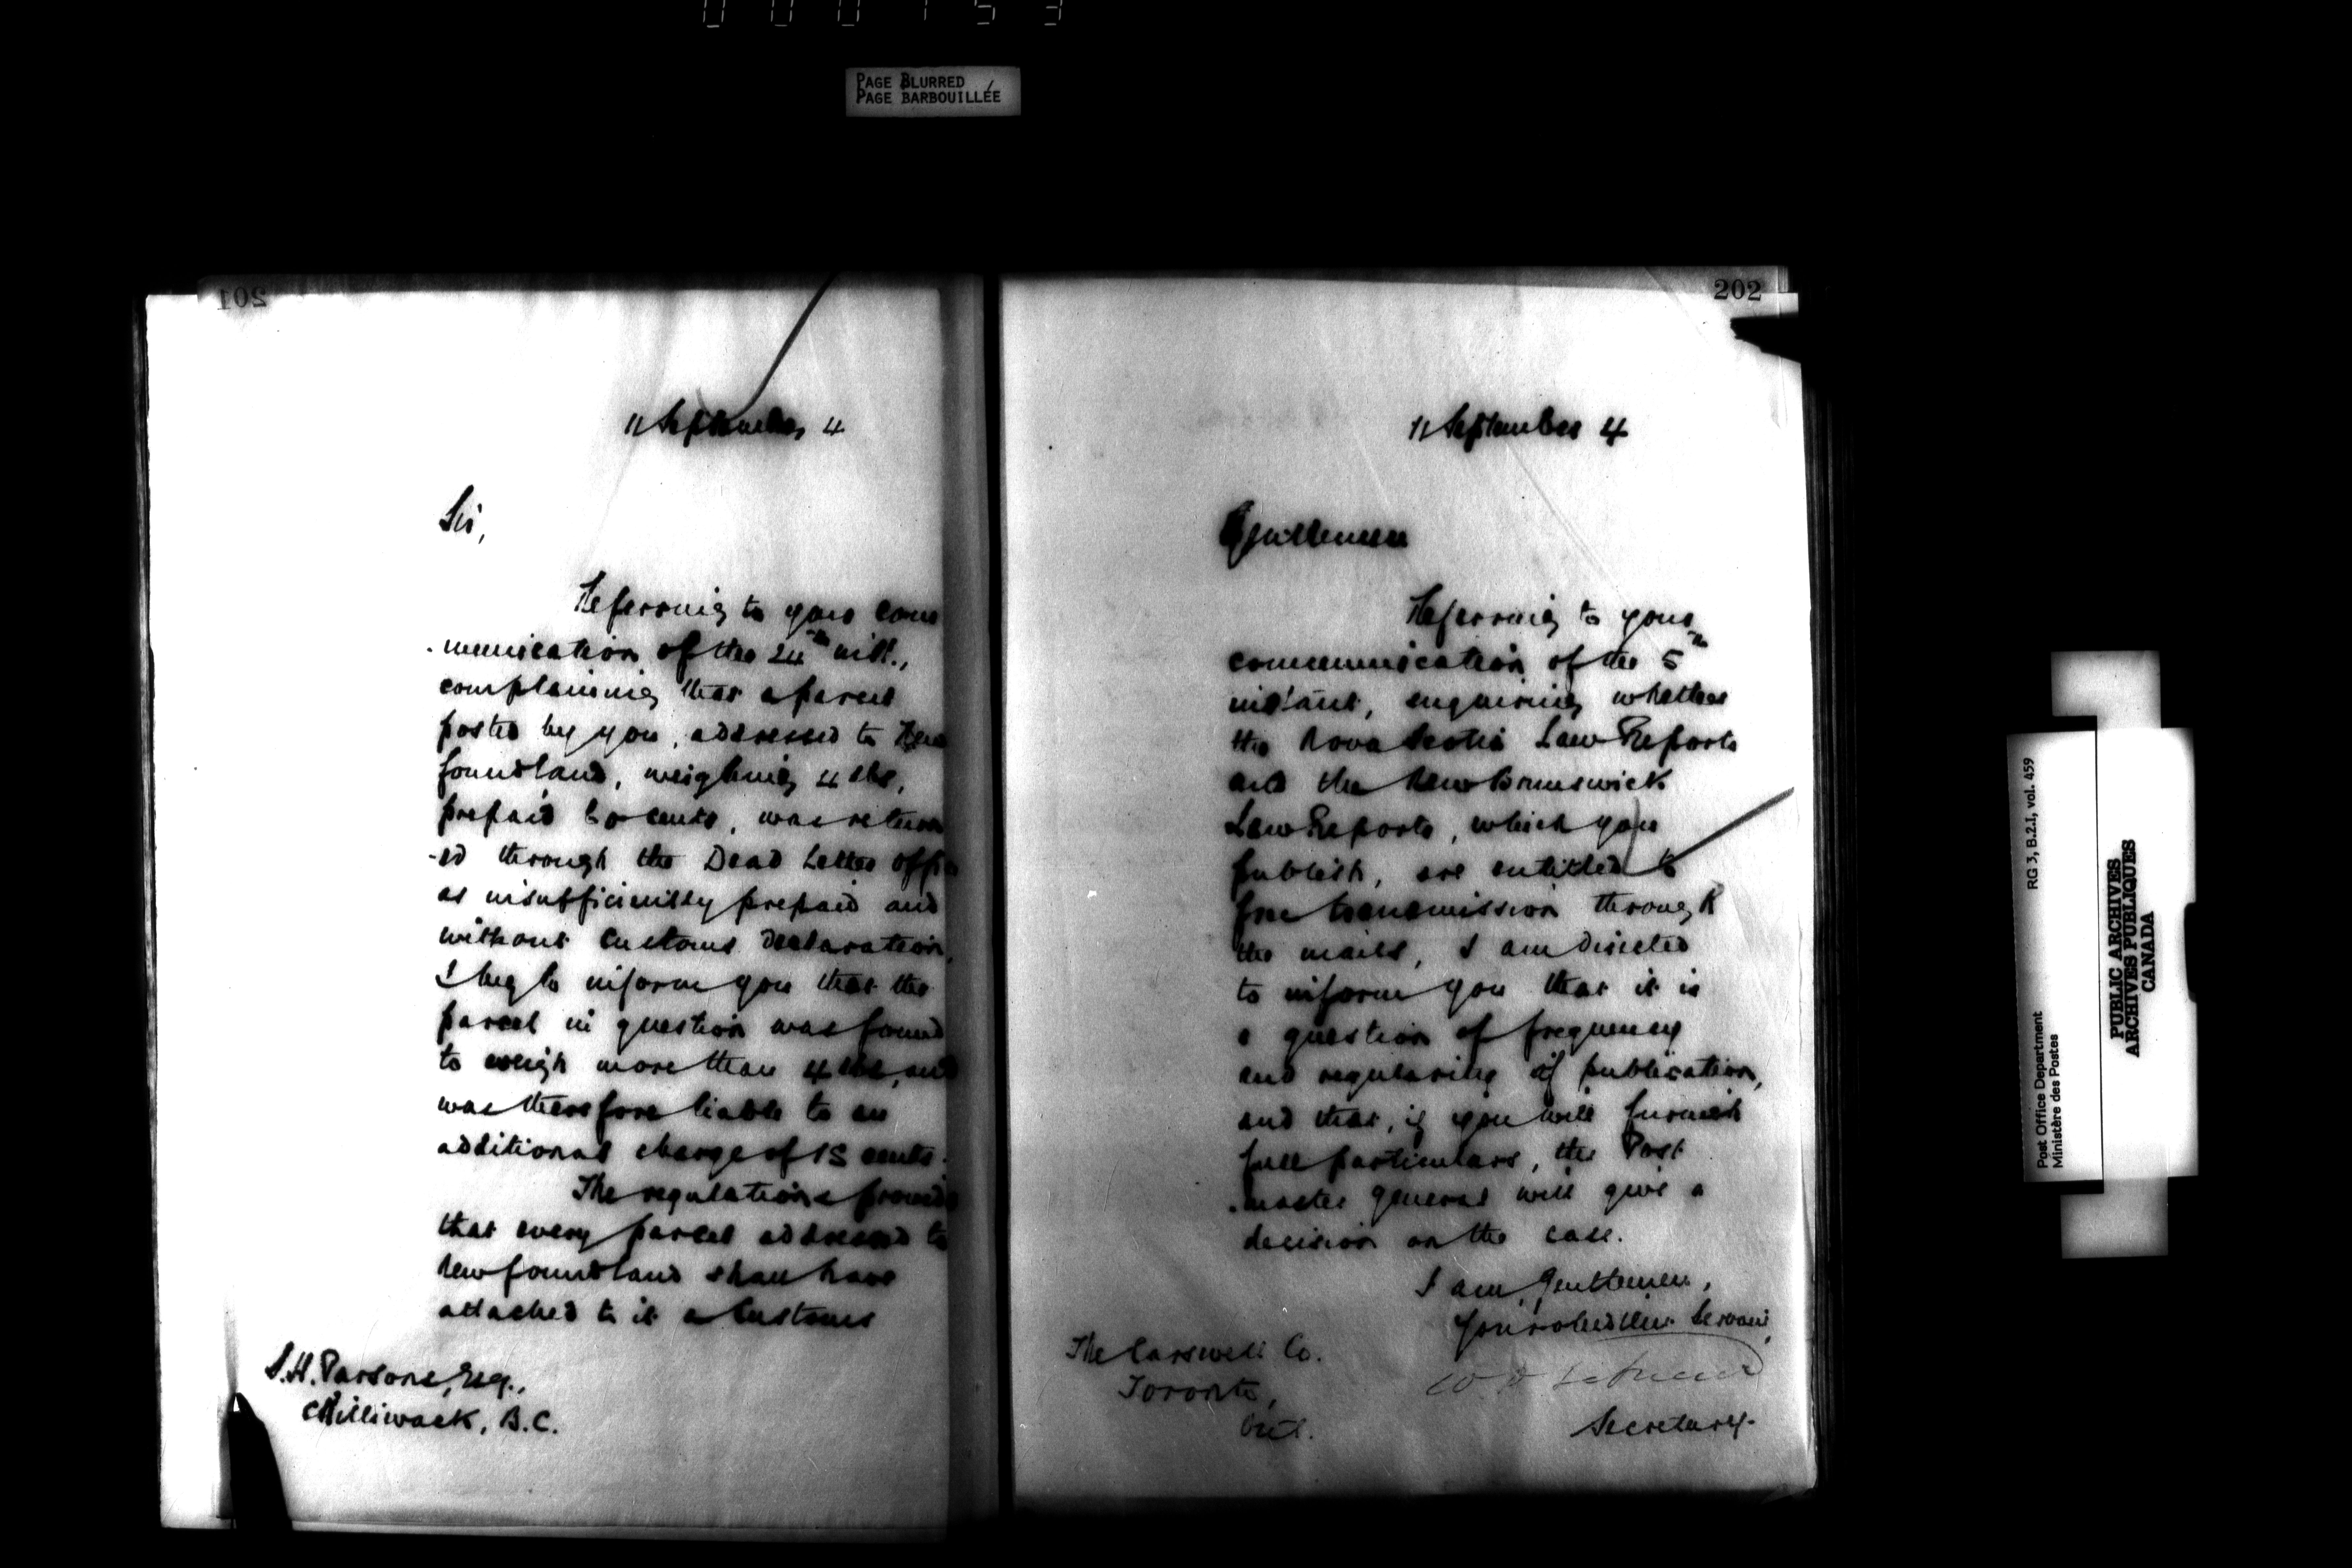 000153
PAGE BLURRED
PAGE BARBOUILLÉE
201
11 September 4
Sir,
Referring to your com
-munication of the 24th ult.,
complaining that a parcel
posted by you, addressed to New
foundland, weighing 4 lbs,
prepaid 60 cents, was return
-ed through the Dead Letter Office
as insufficiently prepaid and
without Customs Declaration,
I beg to inform you that the
parcel in question was found
to weigh more than 4 lbs, and
was therefore liable to an
additional charge of 15 cents.
The regulations provide
that every parcel addressed to
Newfoundland shall have
attached to it a Customs
S.H. Parsons, Esq.,
Chilliwack, B.C.
202
11 September 4
Gentlemen
Referring to your
communication of the 5th
instant, enquiring whether
the Nova Scotia Law Reports
and the New Brunswick
Law Reports, which you
publish, are entitled to
free transmission through
the mails, I am directed
to inform you that it is
a question of frequency
and regularity of publication,
and that, if you will furnish
full particulars, the Post
-master General will give a
decision on the case.
I am, Gentlemen,
Your obedient Servant,
Secretary.
The Carswell Co.
Toronto,
Ont.
RG 3, B.2.1, vol. 459
Post Office Department
Ministère des Postes
PUBLIC ARCHIVES
ARCHIVES PUBLIQUES
CANADA